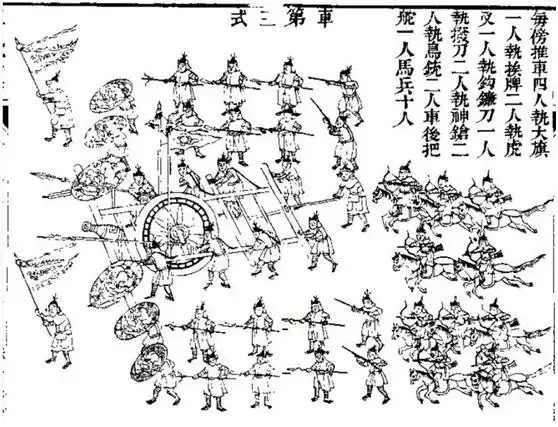 車第三式
每傍推車四人執大旗
一人執挨牌二人執虎
叉一人執鈎鐮刀一人
執撥刀二人執神鎗二
人執鳥銃二人車後把
舵一人馬兵十人